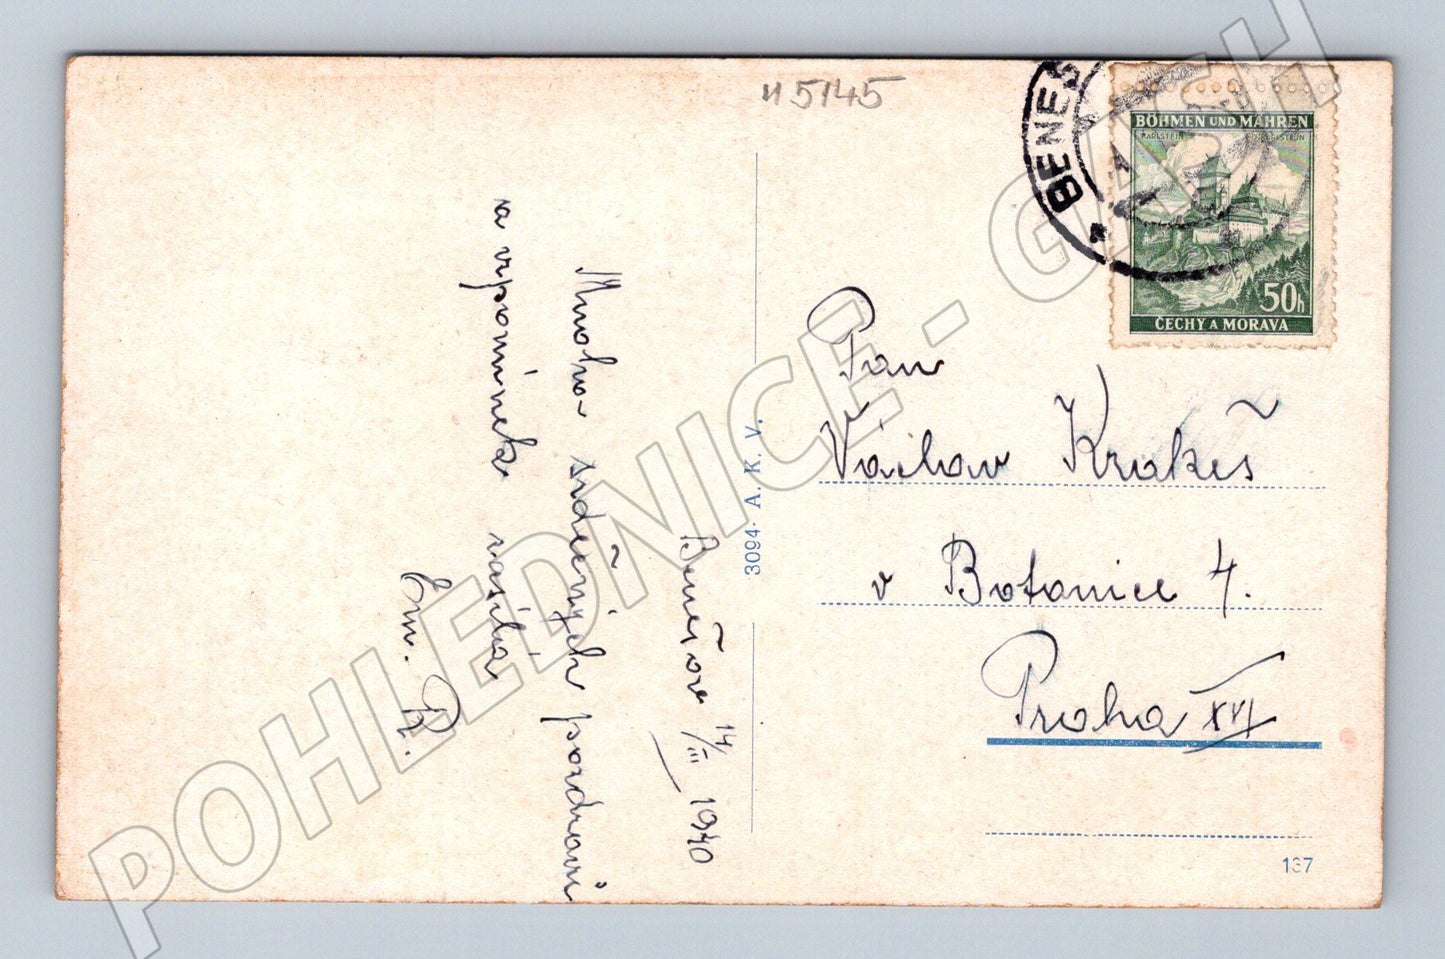 н 5145
BENEŠ
BÖHMEN UND MÄHREN
KARLSTEIN KARLSTEJN
50h
ČECHY A MORAVA
Benešov 14/III 1940
Mnoho srdečných pozdravů
a vzpomínek zasílá
Em. R.
3094. A. K. V.
Pan
Václav Krakeš
v Botanice 4.
Praha XVI
137
POHLEDNICE - CASH